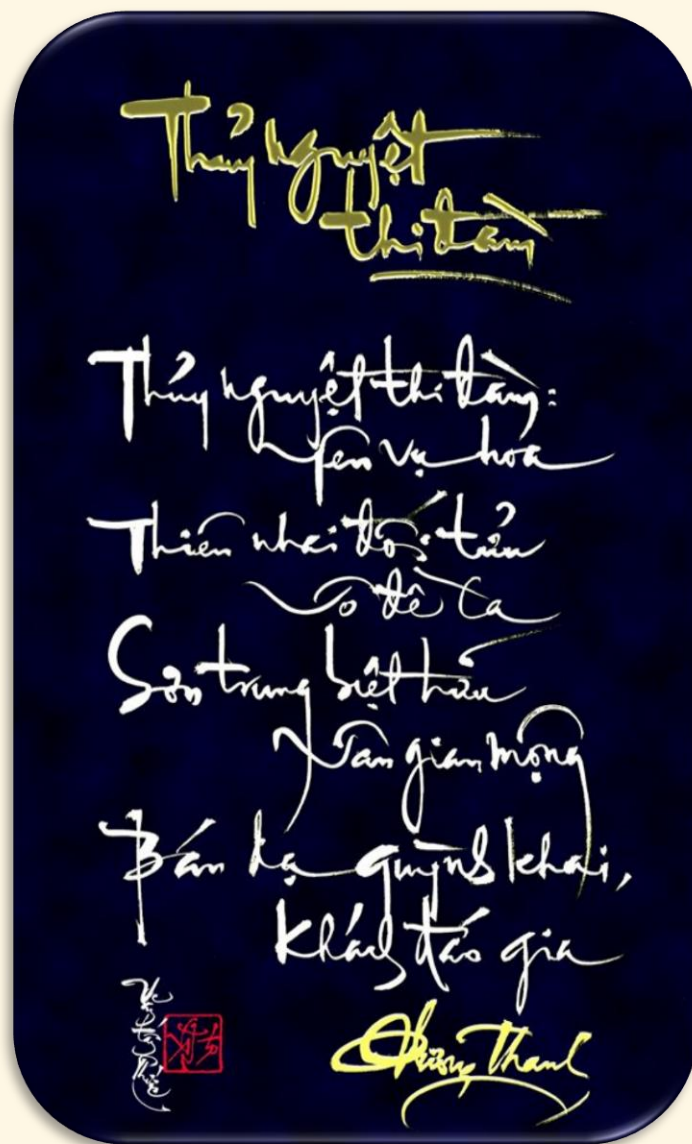 Thủy nguyệt
thi đàn
Thủy nguyệt thi đàn:
yên vụ hoa
Thiên nhai đối tửu
Vô đề ca
Sơn trung biệt hữu
gian mộng
Bán dạ quỳnh khai,
khách đáo gia
Thanh